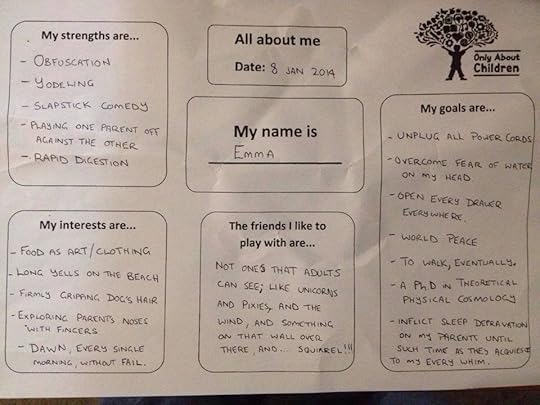 My strengths are...
- OBFUSCATION
- YODELING
- SLAPSTICK COMEDY
- PLAYING ONE PARENT OFF
AGAINST THE OTHER
- RAPID DIGESTION
All about me
Date: 8 JAN 2014
Only About
Children
My name is
EMMA
My goals are...
- UNPLUG ALL POWER CORDS
- OVERCOME FEAR OF WATER
ON MY HEAD.
- OPEN EVERY DRAWER
EVERYWHERE.
- WORLD PEACE
- TO WALK, EVENTUALLY.
- A PhD IN THEORETICAL
PHYSICAL COSMOLOGY
- INFLICT SLEEP DEPRAVATION
ON MY PARENTS UNTIL
SUCH TIME AS THEY ACQUIESE
TO MY EVERY WHIM.
My interests are...
- FOOD AS ART/CLOTHING
- LONG YELLS ON THE BEACH
- FIRMLY GRIPPING DOG'S HAIR
- EXPLORING PARENTS NOSES
WITH FINGERS
- DAWN, EVERY SINGLE
MORNING, WITHOUT FAIL.
The friends I like to
play with are...
NOT ONES THAT ADULTS
CAN SEE; LIKE UNICORNS
AND PIXIES, AND THE
WIND, AND SOMETHING
ON THAT WALL OVER
THERE, AND... SQUIRREL!!!